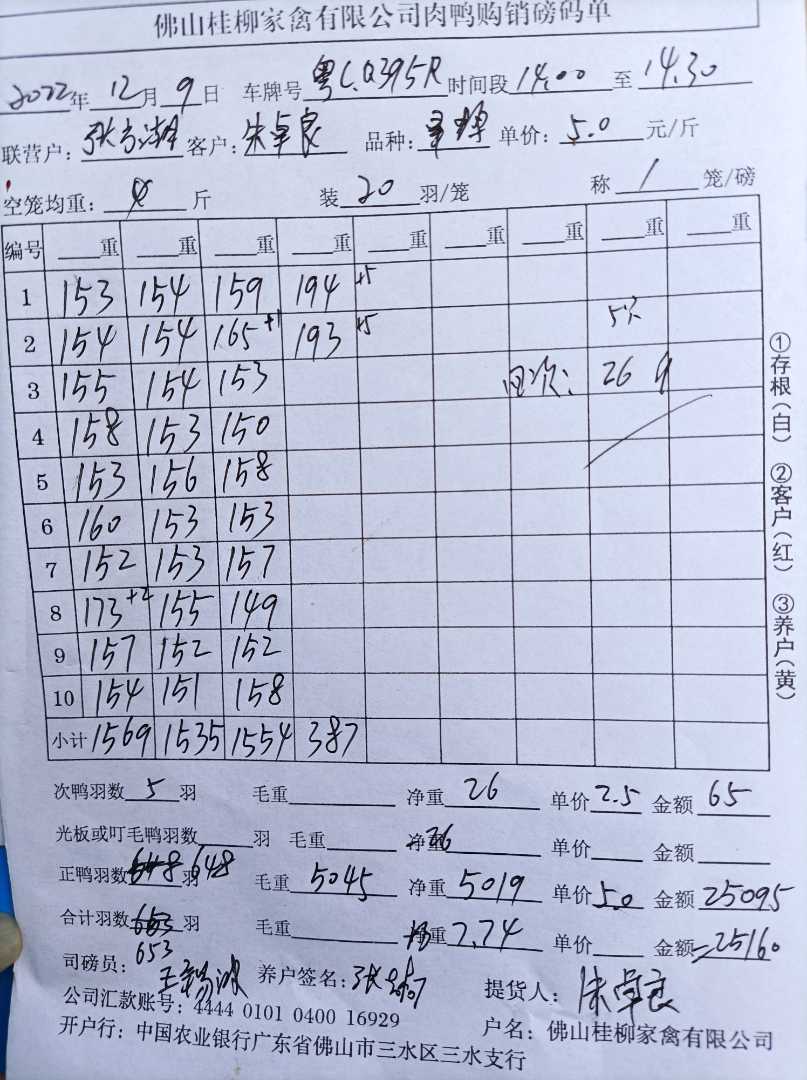 佛山桂柳家禽有限公司肉鸭购销磅码单
2022年 12月 9日 车牌号 粤C.Q395R 时间段 14.00 至 14.30
联营户: 客户: 朱卓良 品种: 单价: 5.0 元/斤
空笼均重: 斤 装 20 羽/笼 称 1 笼/磅
编号 重 重 重 重 重 重 重 重 重
1 153 154 159 194 +5
2 154 154 165+1 193 +5 5只
3 155 154 153 次: 26
4 158 153 150
5 153 156 158
6 160 153 153
7 152 153 157
8 173+2 155 149
9 157 152 152
10 154 151 158
小计 1569 1535 1554 387
次鸭羽数 5 羽 毛重 净重 26 单价 2.5 金额 65
光板或叮毛鸭羽数 羽 毛重 净重 单价 金额
正鸭羽数 648 648 羽 毛重 5045 净重 5019 单价 5.0 金额 25095
合计羽数 653 羽 毛重 净重 7.74 单价 金额 25160
653
司磅员: 养户签名: 提货人: 朱卓良
公司汇款账号: 4444 0101 0400 16929 户名: 佛山桂柳家禽有限公司
开户行: 中国农业银行广东省佛山市三水区三水支行
①存根(白) ②客户(红) ③养户(黄)